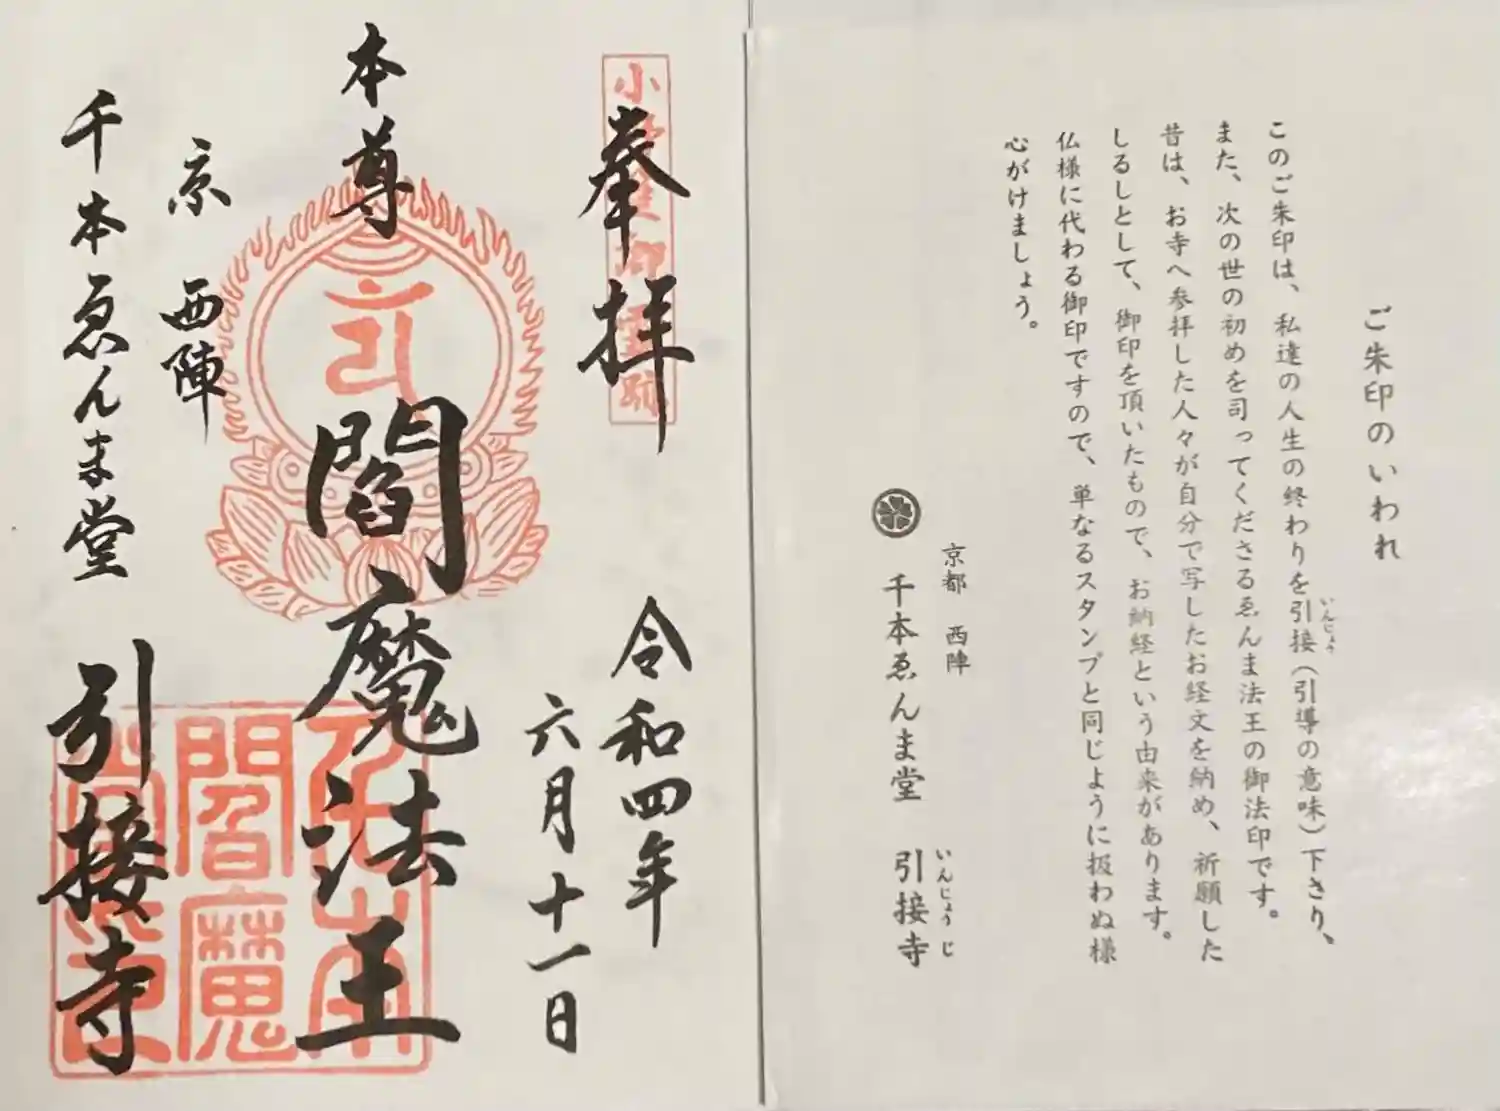 ご朱印のいわれ
このご朱印は、私達の人生の終わりを引接（引導の意味）下さり、
いんじょう
また、次の世の初めを司ってくださるゑんま法王の御法印です。
昔は、お寺へ参拝した人々が自分で写したお経文を納め、祈願した
しるしとして、御印を頂いたもので、お納経という由来があります。
仏様に代わる御印ですので、単なるスタンプと同じように扱わぬ様
心がけましょう。
京都 西陣
千本ゑんま堂 引接寺
いんじょうじ
奉拝
令和四年
六月十一日
本尊
閻魔法王
京 西陣
千本ゑんま堂
引接寺